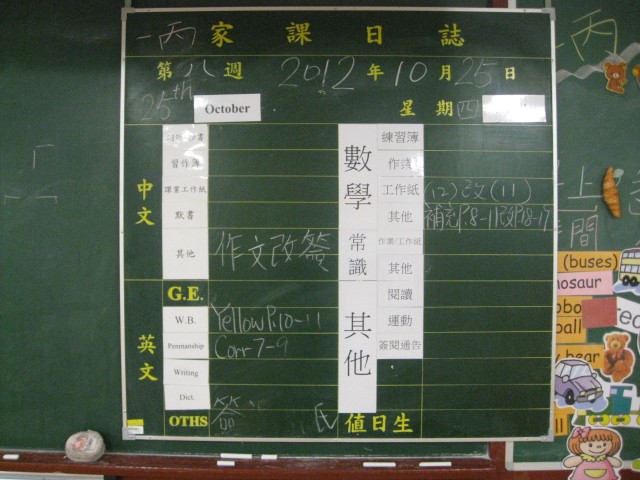 一丙 家課日誌
第八週 2012年10月25日
25th October 星期四
中文
習作簿
課業工作紙
默書
其他 作文改簽
英文
G.E.
W.B. Yellow P.10-11
Penmanship Corr 7-9
Writing
Dict.
OTHS 簽
數學
練習簿
作業
工作紙 (12)改(11)
其他
常識
作業/工作紙
其他
其他
閱讀
運動
簽閱通告
值日生
一丙
上
間
(buses)
nosaur
ball
bear